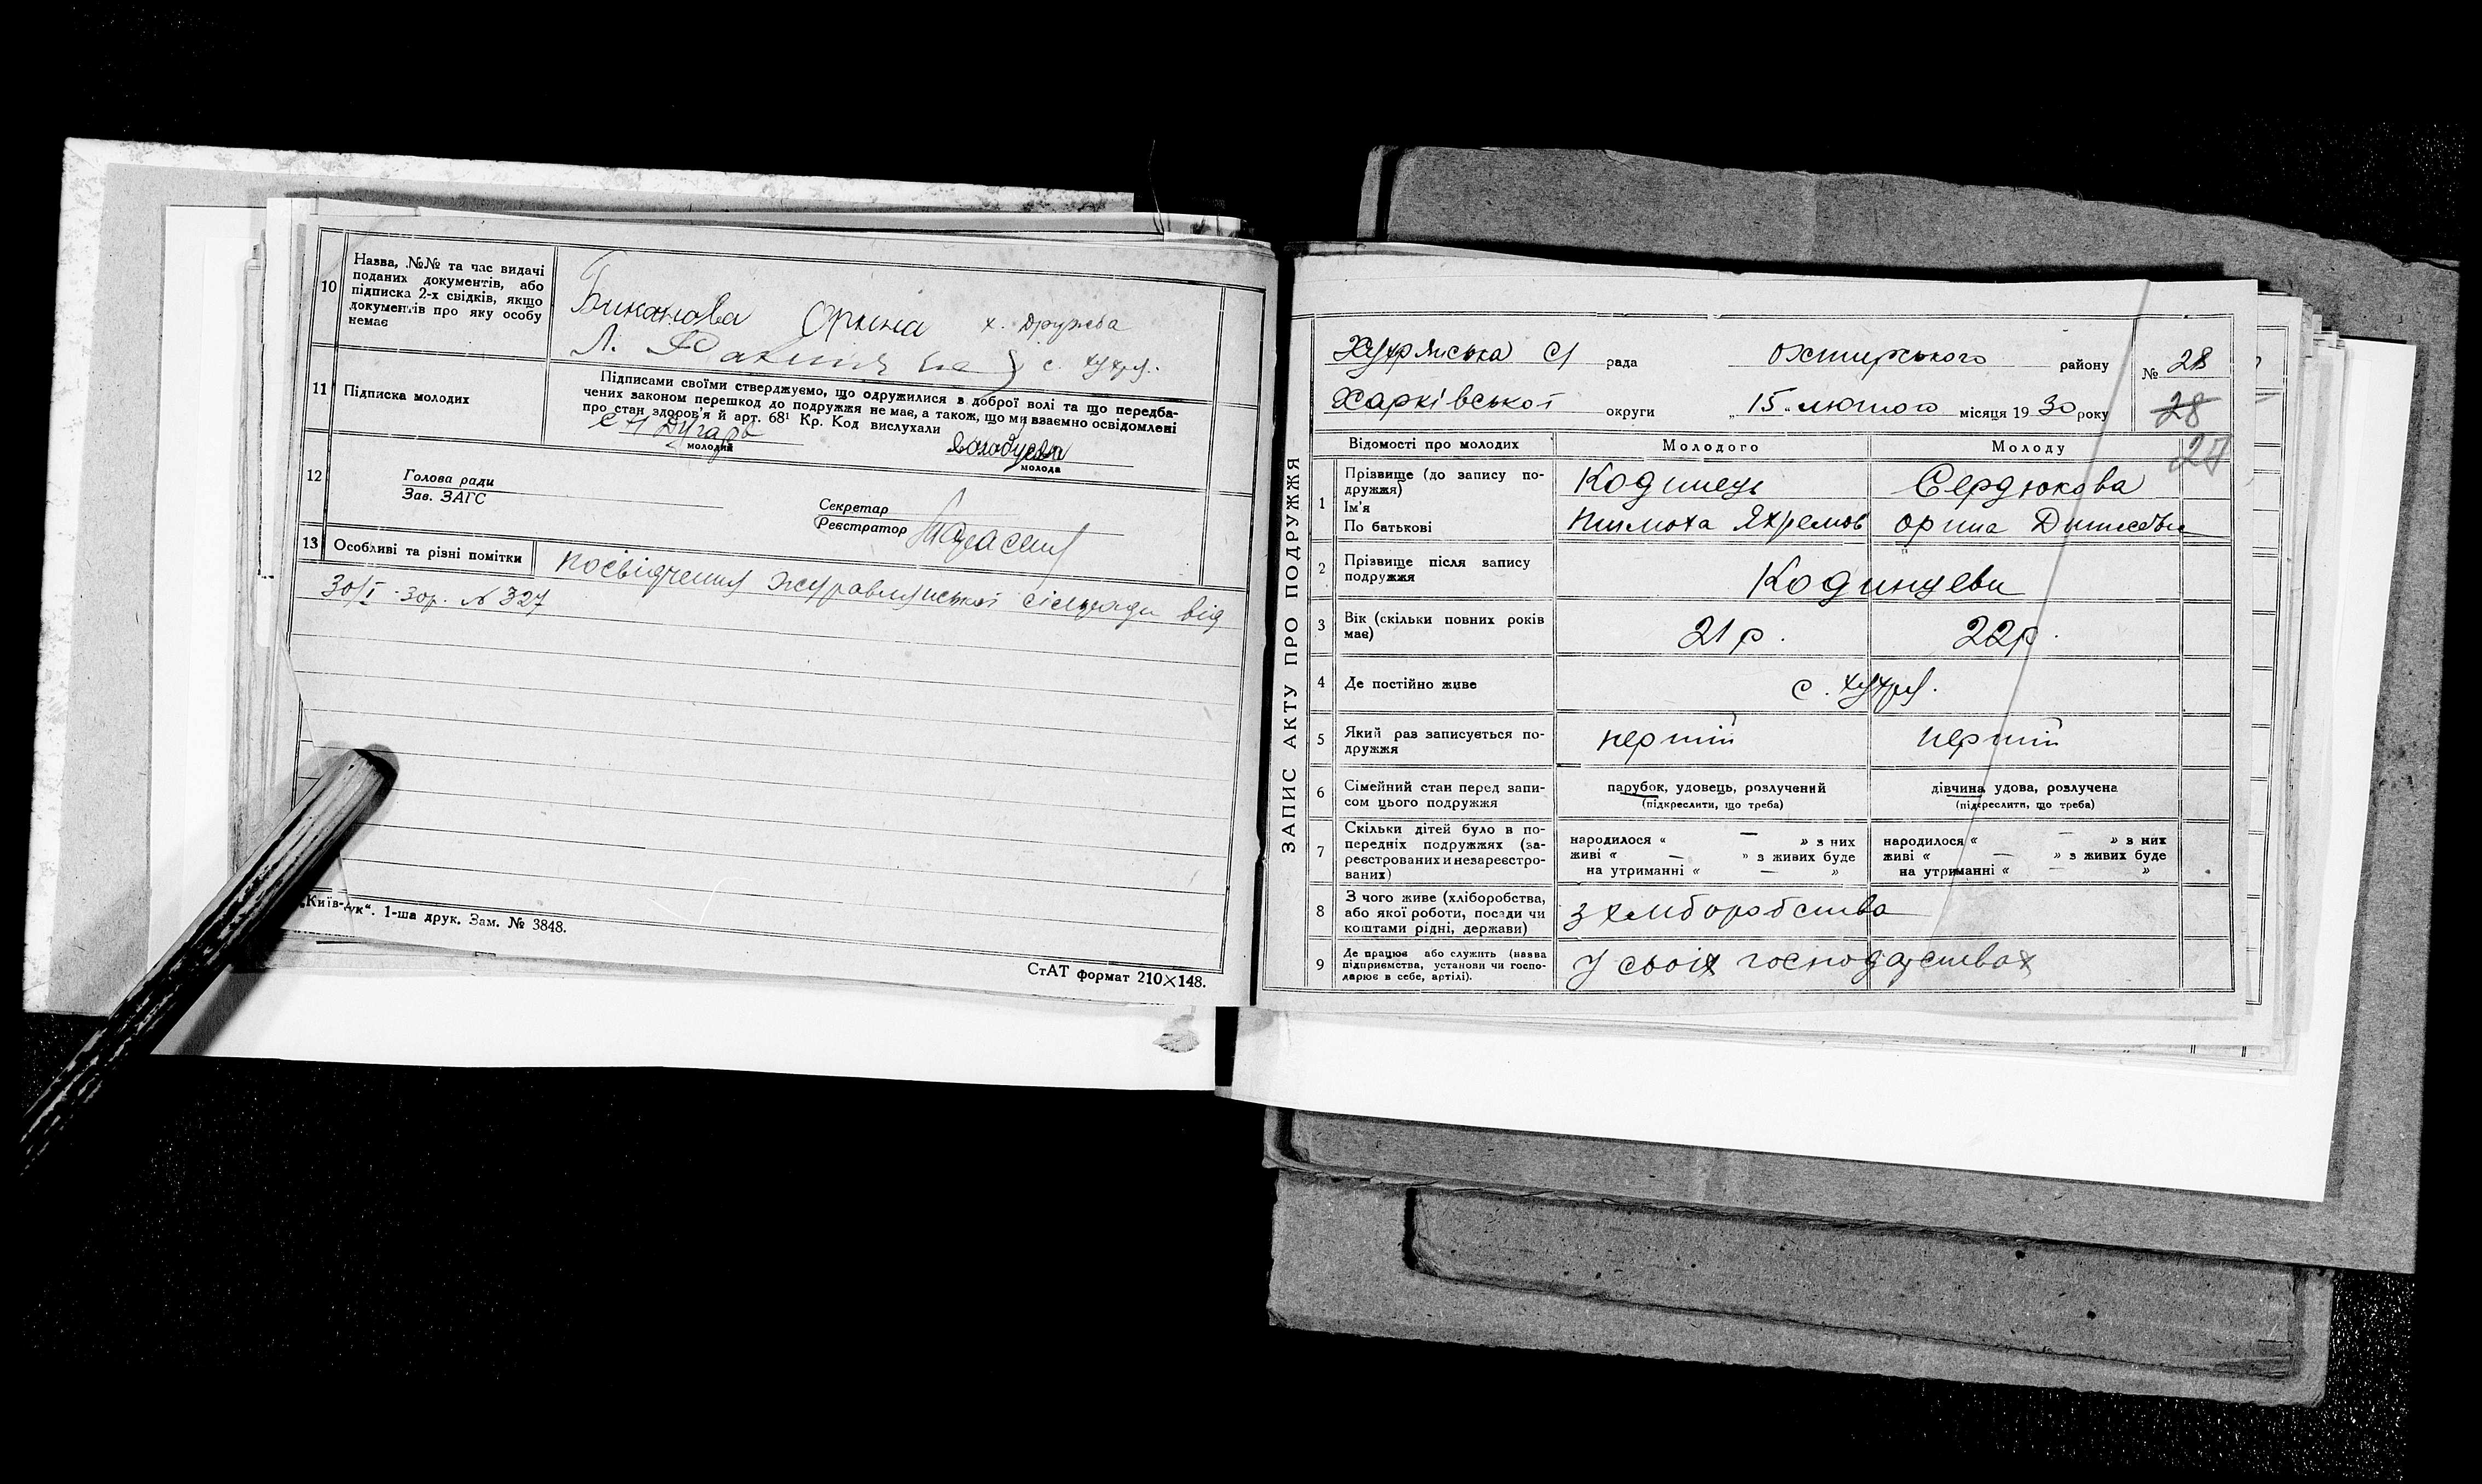 10
Назва, №№ та час видачі
поданих документів, або
підписка 2-х свідків, якщо
документів про яку особу
немає
Биканова Орина х. Дружба
Л. с. Хухря.
11
Підписка молодих
Підписами своїми стверджуємо, що одружилися в доброї волі та що передба-
чених законом перешкод до подружжя не має, а також, що ми взаємно освідомлені
про стан здоров'я й арт. 68¹ Кр. Код вислухали
молодий
молода
12
Голова ради
Зав. ЗАГС
Секретар
Реєстратор
13
Особливі та різні помітки
посвідчення Журавлинської сільради від
30/I 30р. № 327
„Київ-друк“. 1-ша друк. Зам. № 3848.
СтАТ формат 210×148.
ЗАПИС АКТУ ПРО ПОДРУЖЖЯ
Хухрянська С/ рада Охтирського району № 28
Харківської округи „15„ лютого місяця 1930 року 28
27
Відомості про молодих
Молодого
Молоду
1
Прізвище (до запису по-
дружжя)
Ім'я
По батькові
Кодинець
Тимоха Яхремов
Сердюкова
Орина Денисовна
2
Прізвище після запису
подружжя
Кодинцеви
3
Вік (скільки повних років
має)
21 р.
22р.
4
Де постійно живе
с. Хухря.
5
Який раз записується по-
дружжя
перший
перший
6
Сімейний стан перед запи-
сом цього подружжя
парубок, удовець, розлучений
(підкреслити, що треба)
дівчина, удова, розлучена
(підкреслити, що треба)
7
Скільки дітей було в по-
передніх подружжях (за-
реєстрованих и незареєстро-
ваних)
народилося « — » з них
живі « — » з живих буде
на утриманні « — »
народилося « — » з них
живі « — » з живих буде
на утриманні « — »
8
З чого живе (хліборобства,
або якої роботи, посади чи
коштами рідні, держави)
з хліборобства
9
Де працює або служить (назва
підприємства, установи чи госпо-
дарює в себе, артілі).
У своїх господарствах